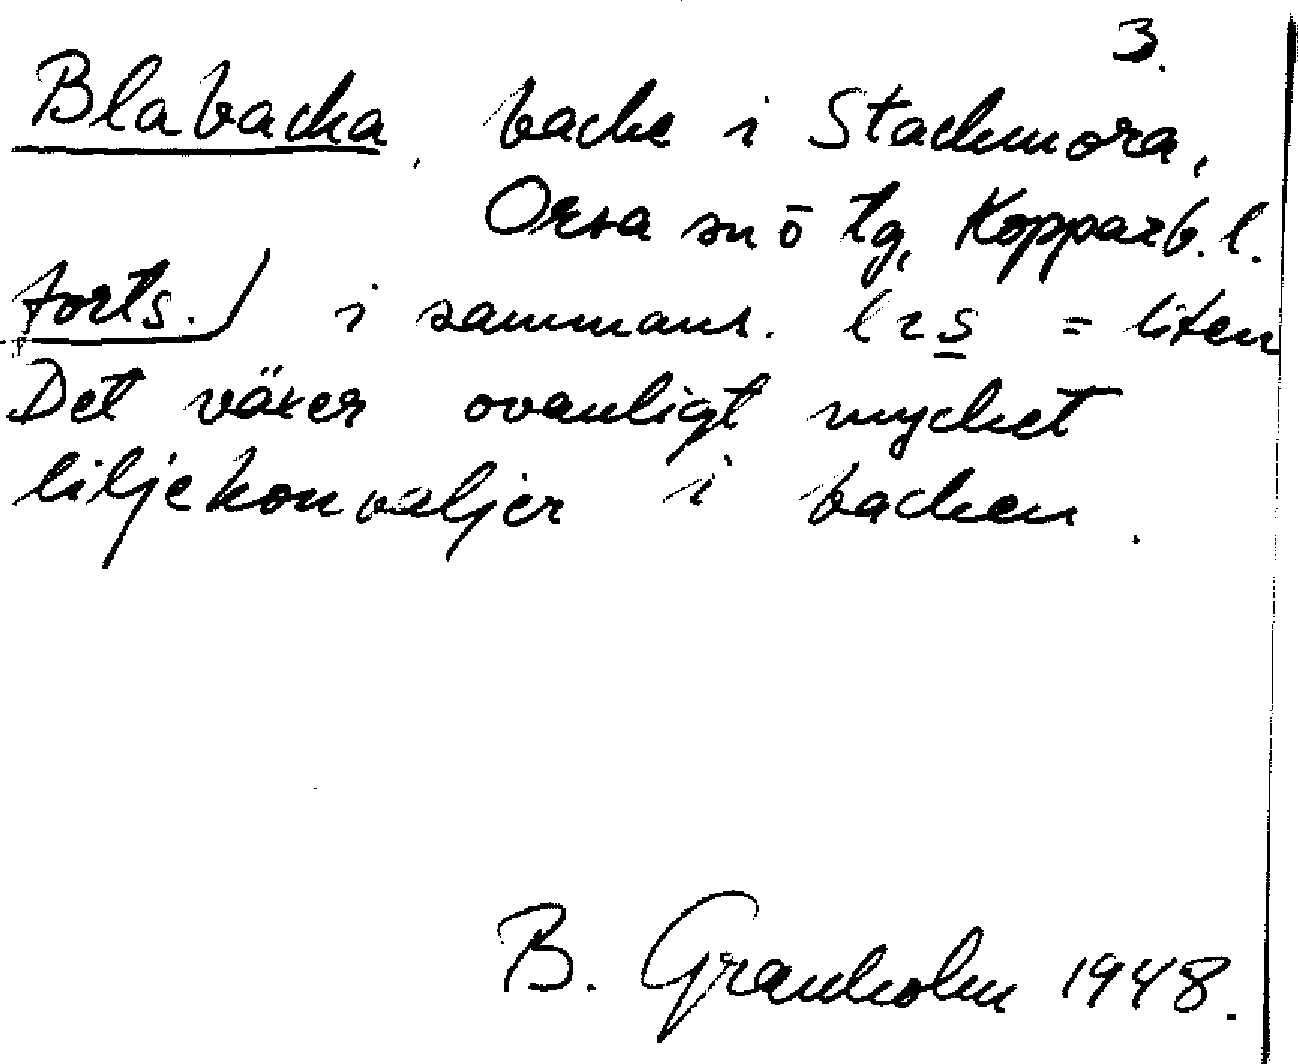 3.
Blabacka, backe i Stackmora,
Orsa sn ō tg, Kopparb. l.
forts.) i sammans. l = liten
Det växer ovanligt mycket
liljekonvaljer i backen.
B. Granholm 1948.